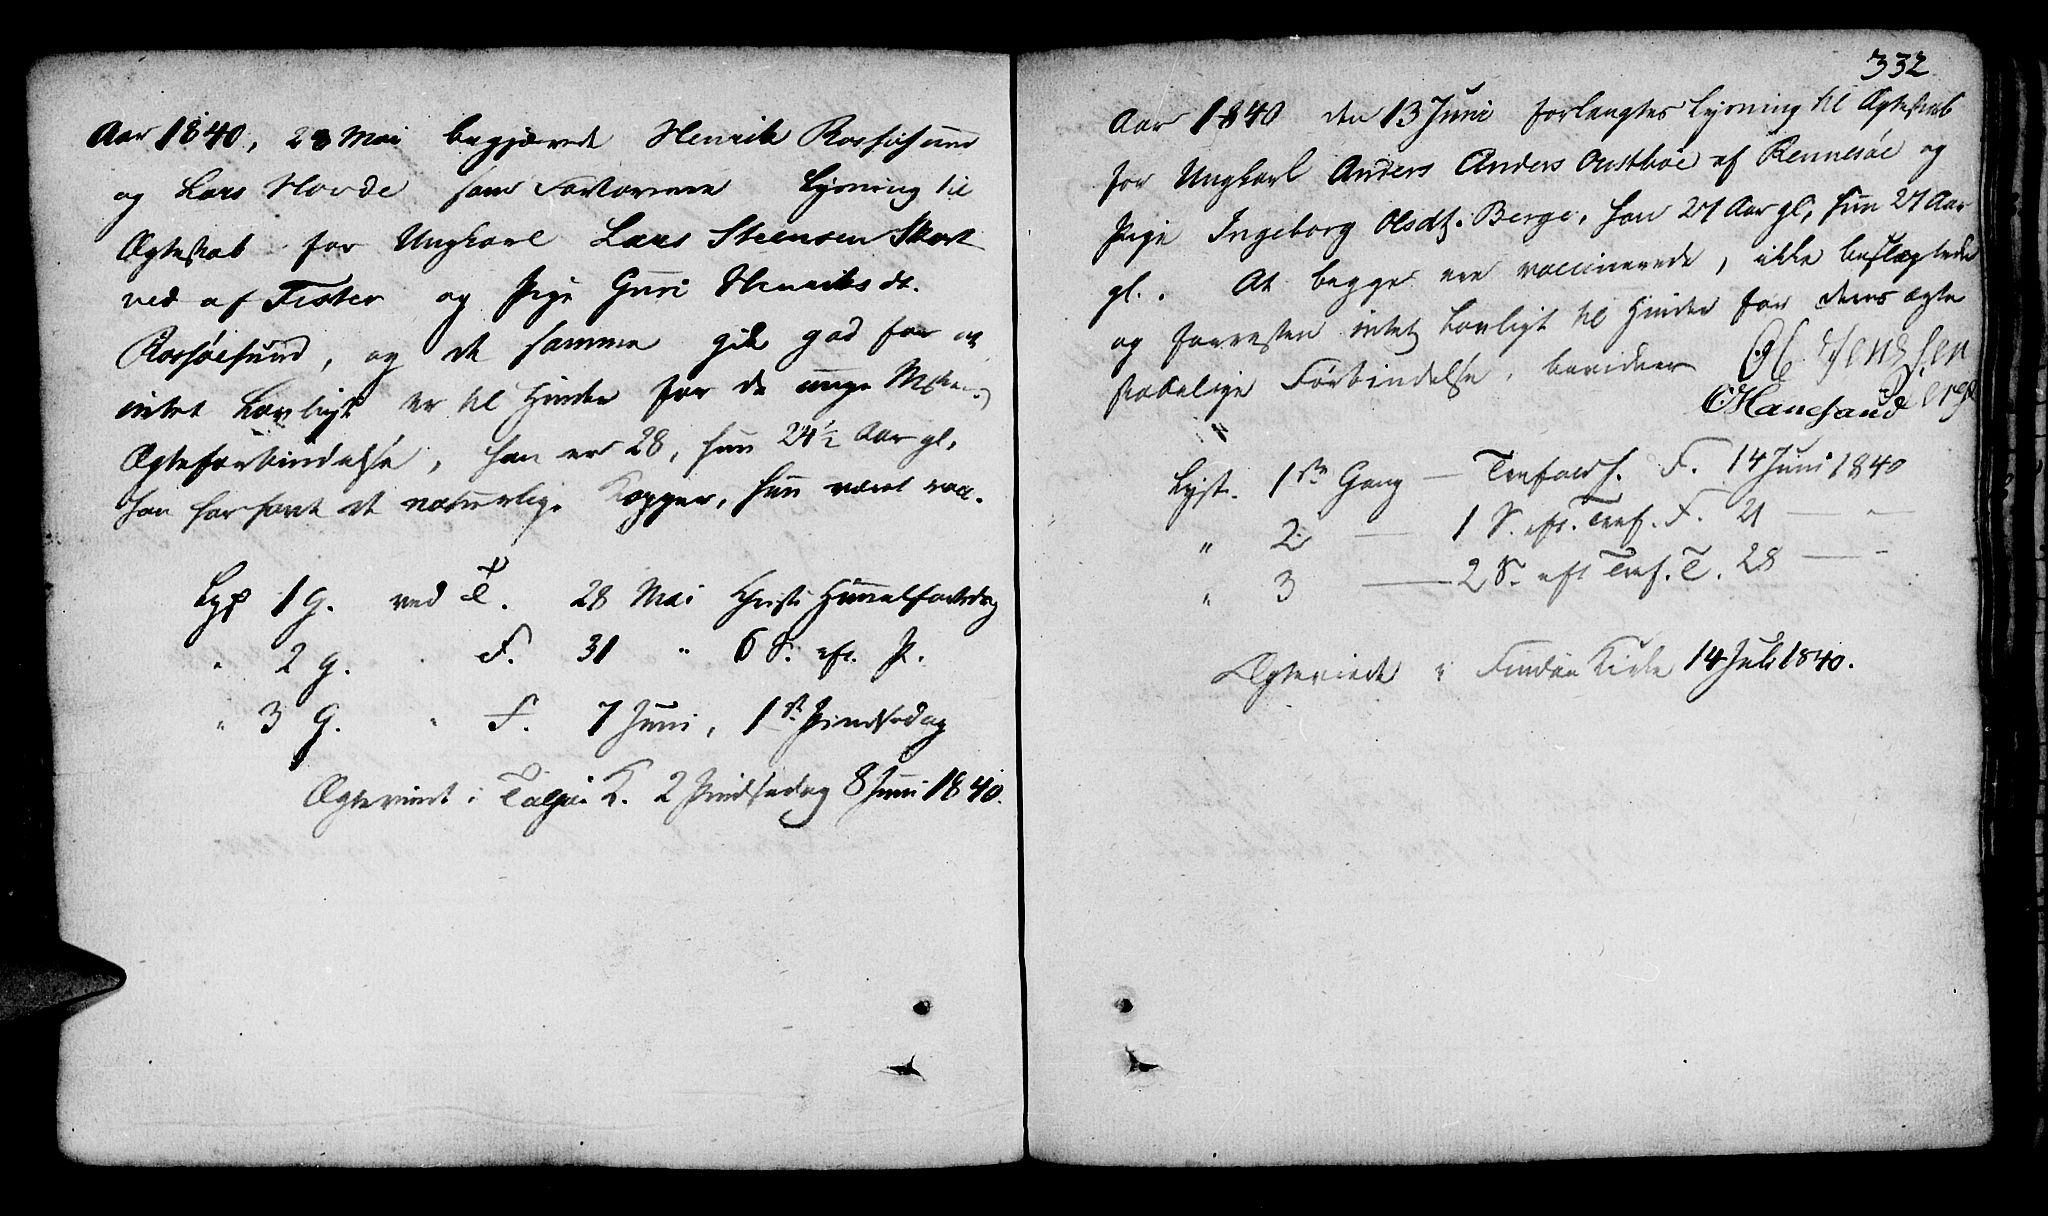 Aar 1840, 28 Mai begjærede Henrik Rossøesund
og Lars Hovde som Forlovere Lysning til
Ægteskab for Ungkarl Lars Steensen Skart
ved af Fister og Pige Guri Henriksdt.
Rossøesund, og de samme gik god for at
intet Lovligt er til Hinder for de unge
Ægteforbindelse, han er 28, hun 24½ Aar gl,
han har havt de naturlige Kopper, hun været vacc.
Lyst 1 G. ved T. 28 Mai Christi Himmelfartsdag
" 2 G. " F. 31 " 6 S. eft. P.
" 3 G. " F. 7 Juni, 1ste Pindsedag
Ægteviet i Talgø K. 2 Pindsedag 8 Juni 1840.
332
Aar 1840 den 13 Juni forlangtes Lysning til Ægteskab
for Ungkarl Anders Anders Oustbøe af Rennesøe og
Pige Ingeborg Olsdt. Berge, han 27 Aar gl, hun 27 Aar
gl. At begge ere vaccinerede, ikke beslægtede
og forresten intet Lovligt til Hinder for deres ægte
skabelige Forbindelse, bevidner
Berge
Hanesand
Lyst. 1ste Gang — Trefoldh. F. 14 Juni 1840
" 2 — 1 S. eft. Tref. F. 21 — "
" 3 — 2 S. eft Tref. T. 28 — "
Ægteviede i Findøe Kirke 14 Juli 1840.